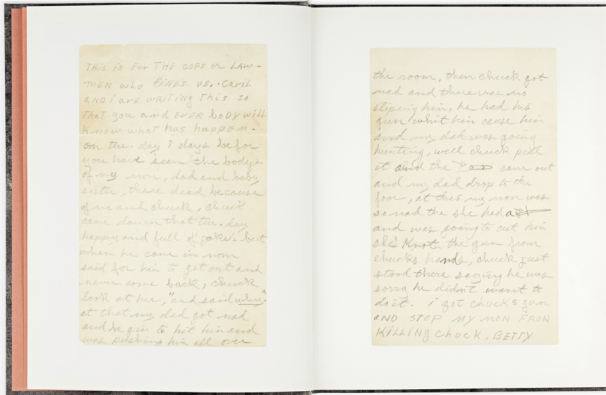 THIS is FOR THE COPS OR LAW-
MEN who FINDS US. CARIL
AND I ARE WRITING This SO
THAT you AND EVER body will
know what has happem.
on the day 7 days be for
you have seen the bodys
of my mom, dad and baby
sister, there dead because
of me and chuck, chuck
came down that tue. day
happy and full of jokes. but
when he came in mom
said for him to get out and
never come back, chuck
look at her, "and said why"
at that my dad got mad
and be gin to hit him and
was pushing him all over
the room, then chuck got
mad and there was no
stoping him, he had his
gun whit him cause him
and my dad was going
hunting, well chuck pull
it and the came out
and my dad drop to the
foor, at that my mom was
so mad the she had a
and was going to cut him
she knot the gun from
chucks hands, chuck just
stood there saying he was
sorry he didn't want to
do it. i got chucks gun
AND STOP MY MOM FROM
KILLING Chuck. BETTY